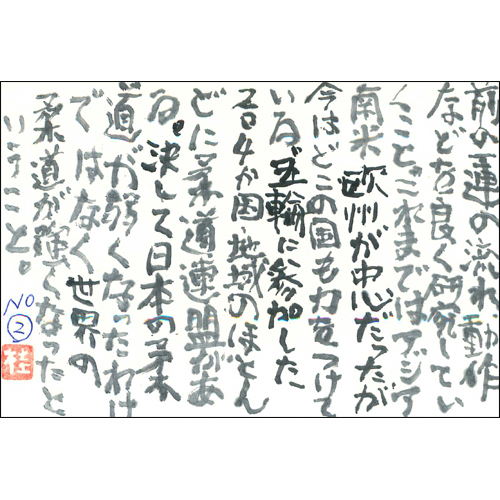 前の運の流れ、動作
などを良く研究してい
くこと。これまではアジア
南米 欧州が中心だったが
今はどこの国も力をつけて
いる。五輪に参加した
204か国、地域のほとん
どに柔道連盟があ
る。決して日本の柔
道が弱くなったわけ
ではなく世界の
柔道が強くなったと
いうこと。
NO ②
桂